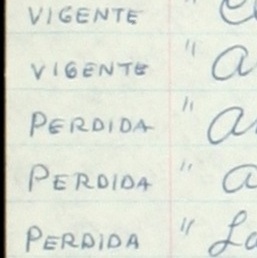 VIGENTE "
VIGENTE "
PERDIDA "
PERDIDA "
PERDIDA "